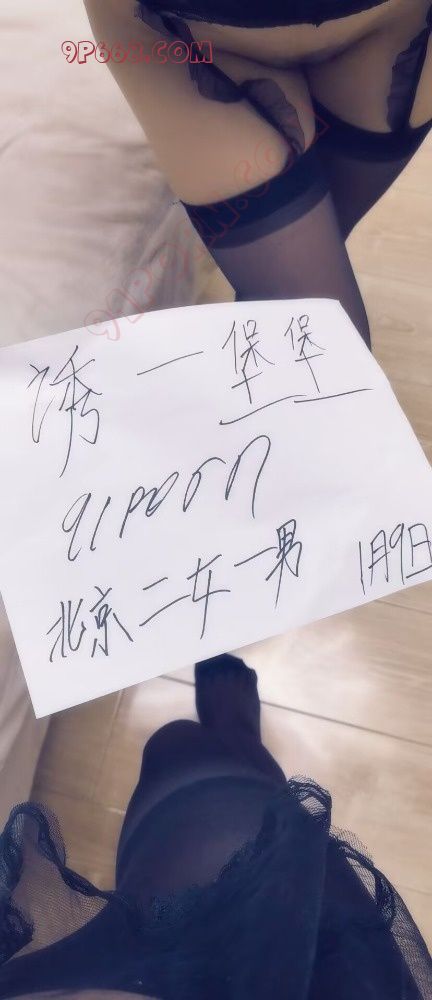 9P66C.COM
诱一堡堡
91porn
北京二女一男
1月9日